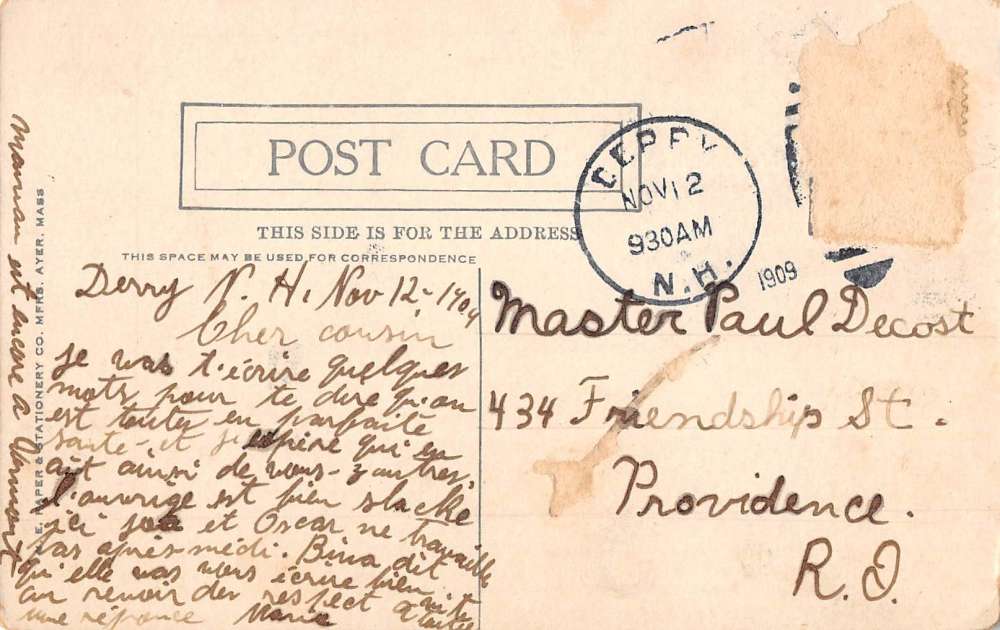 POST CARD
THIS SIDE IS FOR THE ADDRESS
THIS SPACE MAY BE USED FOR CORRESPONDENCE
DERRY
NOV 12
930AM
N.H.
1909
Derry N. H. Nov 12-1909
Cher cousin
je vas t'écrire quelques
mots pour te dire qu'on
est toutes en parfaite
santé et j'espère qui en
ait ainsi de vous-zautres,
l'ouvrage est bien slacke
ici et Oscar ne travaille
pas après-médi. Bina dit
qu'elle vas vous écrire bien vite
au revoir des respect a toutes
une réponce Maria
Maman est encore a Vermont
PAPER & STATIONERY CO. MFRS. AYER, MASS
Master Paul Decost
434 Friendship St.
Providence.
R.I.